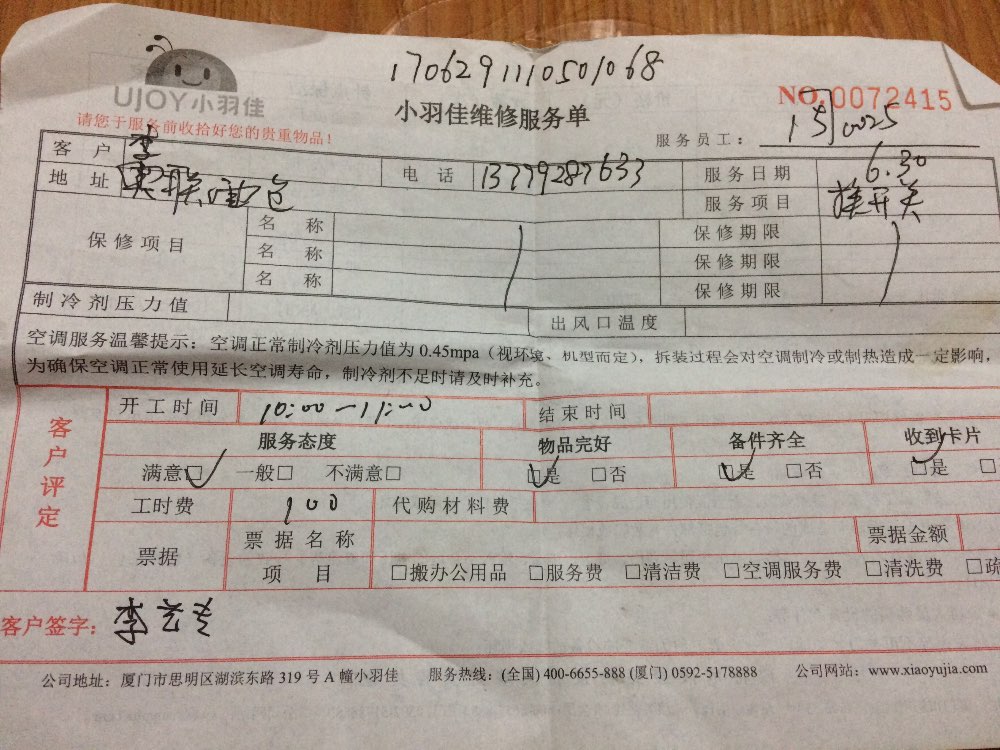 1706291110501068
UJOY小羽佳
小羽佳维修服务单
NO.0072415
请您于服务前收拾好您的贵重物品!
服务员工: 0025
客户 李 电话 13779287633 服务日期 6.30
地址 服务项目 换开关
保修项目 名称 保修期限
名称 保修期限
名称 保修期限
制冷剂压力值 出风口温度
空调服务温馨提示:空调正常制冷剂压力值为0.45mpa(视环境、机型而定),拆装过程会对空调制冷或制热造成一定影响,
为确保空调正常使用延长空调寿命,制冷剂不足时请及时补充。
客户评定
开工时间 10:00-11:00 结束时间
服务态度 物品完好 备件齐全 收到卡片
满意☑ 一般□ 不满意□ ☑是 □否 ☑是 □否 ☑是 □
工时费 100 代购材料费
票据 票据名称 票据金额
项目 □搬办公用品 □服务费 □清洁费 □空调服务费 □清洗费 □疏
客户签字: 李
公司地址:厦门市思明区湖滨东路319号A幢小羽佳 服务热线:(全国)400-6655-888(厦门)0592-5178888 公司网站:www.xiaoyujia.com